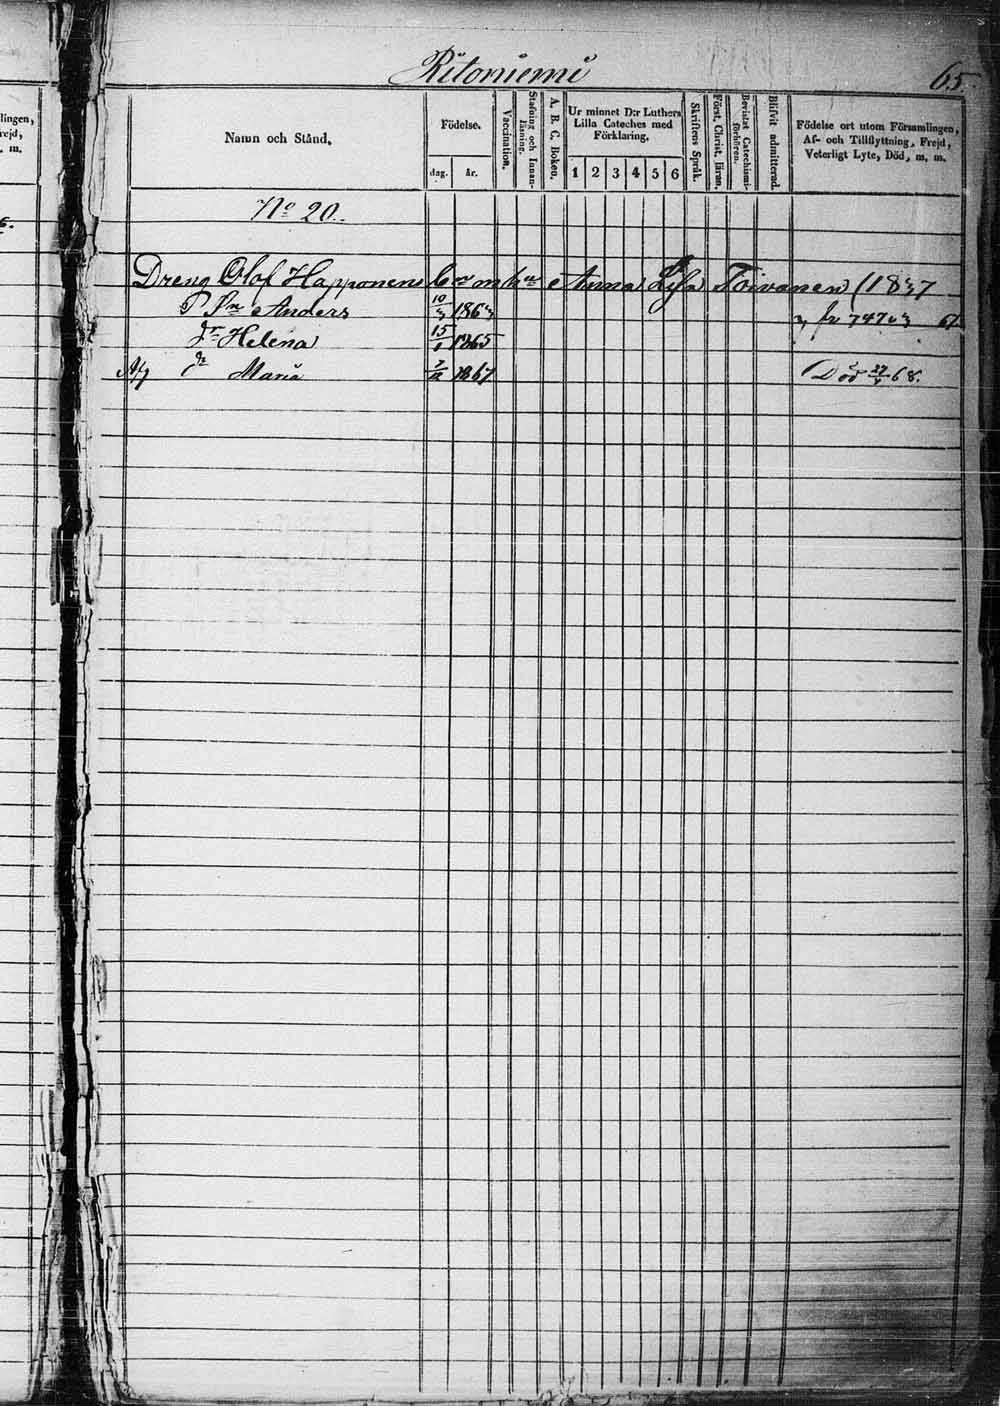 Ritoniemi 65
lingen,
rejd,
. m.
Namn och Stånd.
Födelse.
dag. år.
Vaccination.
Stafning och Innan-
läsning.
A. B. C. Boken.
Ur minnet D:r Luthers
Lilla Cateches med
Förklaring.
1 2 3 4 5 6
Skriftens Språk.
Först. Christ. läran.
Bevistat Catechismi-
förhören.
Blifvit admitterad.
Födelse ort utom Församlingen,
Af- och Tillflyttning, Frejd,
Veterligt Lyte, Död, m. m.
6.
No 20.
Dreng Olof Happonens Anna Lisa Toivanen (1837
Anders 10/3 1863 fr 747 67
Helena 15/1 1865
Maria 1867 Död 68.